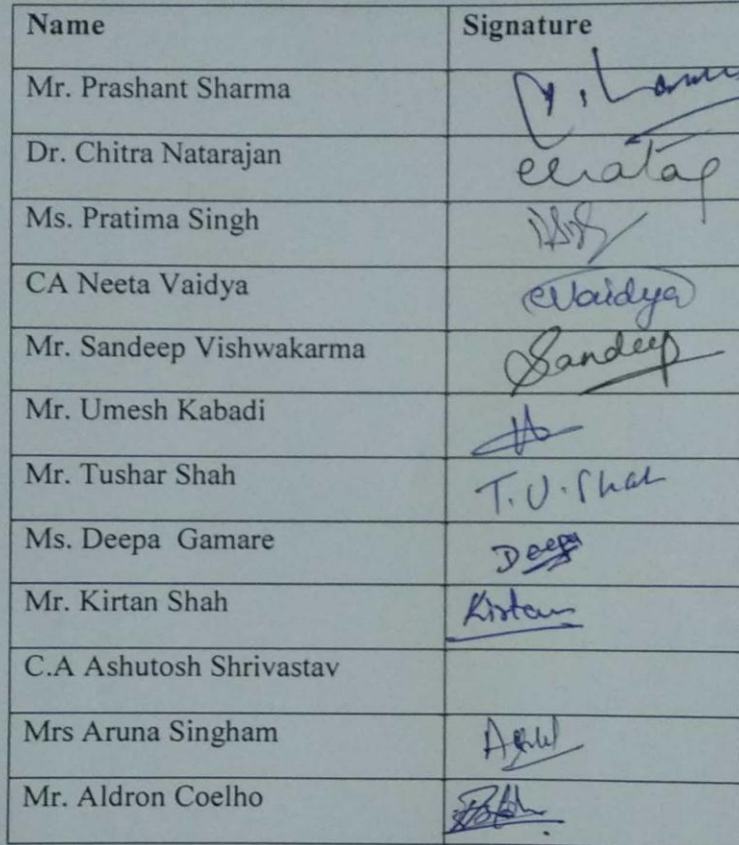 Name Signature
Mr. Prashant Sharma
Dr. Chitra Natarajan
Ms. Pratima Singh
CA Neeta Vaidya eVaidya
Mr. Sandeep Vishwakarma Sandeep
Mr. Umesh Kabadi
Mr. Tushar Shah T.U.Shah
Ms. Deepa Gamare Deepa
Mr. Kirtan Shah Kirtan
C.A Ashutosh Shrivastav
Mrs Aruna Singham
Mr. Aldron Coelho